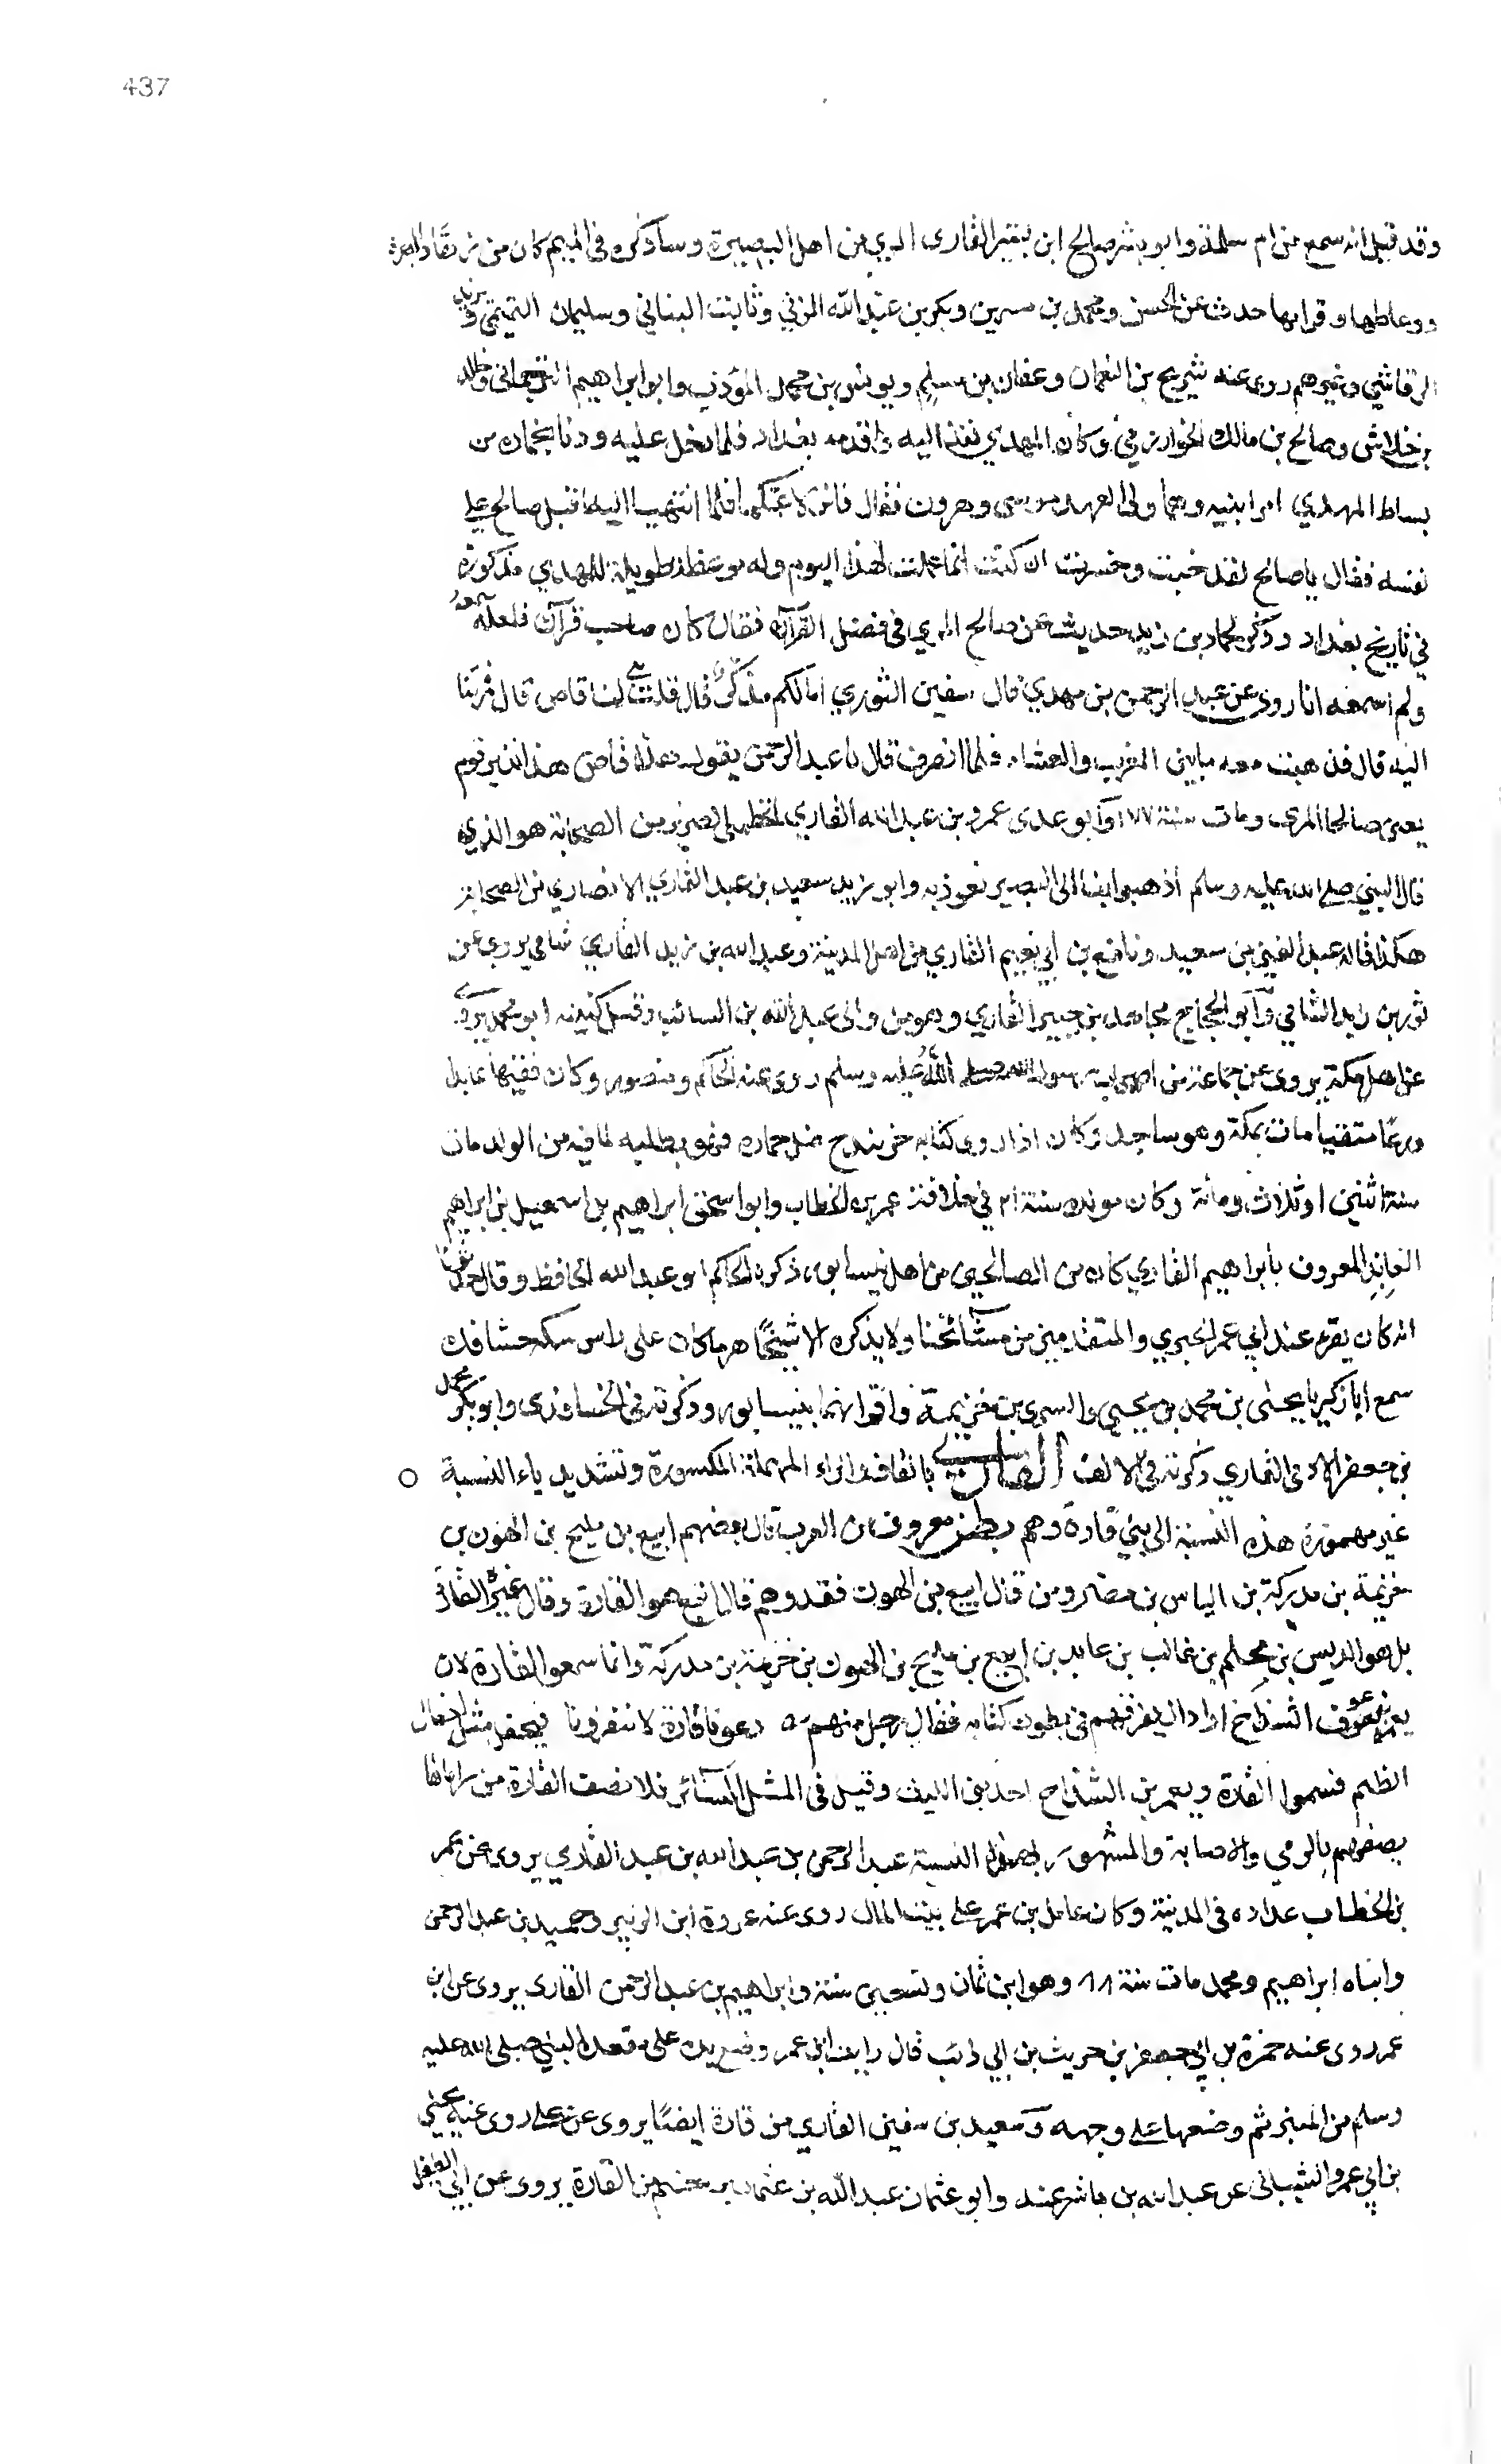 437
وقد قيل انه سمع من ام سلمة وابو بشر صالح ابن بشير القارى المري من اهل البصرة وساذكره في الميم كان من
ووعاظها وقرائها حدث عن الحسن ومحمد بن سيرين وبكر بن عبد الله المزني وثابت البناني وسليمان التيمي ويزيد
الرقاشي وغيرهم روى عنه شريح بن النعمان وعفان بن مسلم ويونس بن محمد المؤدب وابو ابراهيم الترجماني وخالد
بن خداش وصالح بن مالك الخوارزمي وكان المهدي نفذ اليه واقدمه بغداد فلما دخل عليه ودنا بحماره من
بساط المهدي امر ابنيه وهما وليا العهد موسى وهرون فقال فانزلا عمكما فلما انتهيا اليه اقبل صالح على
نفسه فقال يا صالح لقد خبت وخسرت ان كنت انما عملت لهذا اليوم وله موعظة طويلة للمهدي مذكورة
في تاريخ بغداد وذكر لحماد بن زيد حديث عن صالح المري في فضل القرآن فقال كان صاحب قرآن فلعله سمعه
ولم اسمعه انا روى عن عبد الرحمن بن مهدي قال سفين الثوري امالكم مذكر قال قلت بلى لنا قاص قال فمر بنا
اليه قال فذهبت معه مابين المغرب والعشاء فلما انصرف قال يا عبد الرحمن يقول هذا قاص هذا نذير قوم
يعنى صالحا المرى ومات سنة ١٧٧ وابو عدى عمرو بن عبد الله القاري الخطمي الضرير من الصحابة هو الذي
قال النبي صلى الله عليه وسلم اذهبوا بنا الى البصير نعوذ به وابو زيد سعيد بن عبد القاري الانصاري من الصحابة
هكذا قاله عبد الغني بن سعيد ونافع بن ابي نعيم القاري من اهل المدينة وعبد الله بن زيد القاري شامي يروي عن
ثور بن زيد الشامي وابو الحجاج مجاهد بن جبير القاري وهو من والى عبد الله بن السائب وقيل كنيته ابو محمد يروي
عن اهل مكة يروى عن جماعة من اصحاب رسول الله صلى الله عليه وسلم روى عنه الحكم ومنصور وكان فقيها عابدا
ورعا متقيا مات بمكة وهو ساجد وكان اذا روى كتابه
سنة اثنين او ثلاث ومائة وكان مولده سنة ٢١ في خلافة عمر بن الخطاب وابو اسحق ابراهيم بن اسمعيل بن ابراهيم
العابد المعروف بأبراهيم القاري كان من الصالحين من اهل نيسابور ذكره الحاكم ابو عبد الله الحافظ وقال
انه كان يقرء عند ابي عمر الحيري والمتقدمين من مشائخنا ولا يذكره الا شيخا هرما كان على راس سكة
سمع ابا زكريا يحيى بن محمد بن يحيى والسرى بن خزيمة واقرانهما بنيسابور وذكرته في وابو بكر محمد
بن جعفر الادمى القاري ذكرته في الالف القاري بالقاف والراء المهملة المكسورة وتشديد ياء النسبة
غير مهموزة هذه النسبة الى بني قارة وهم بطن معروف من العرب قال بعضهم ابيع بن مليح بن الهون بن
خزيمة بن مدركة بن الياس بن مضر ومن قال ابيع بن الهون فقد وهم قالوا ابيع هو القارة وقال غيره القارة
بل هو الديس بن محلم بن غالب بن عابد بن ابيع بن مليح بن الهون بن خزيمة بن مدركة وانما سموا القارة لان
يعمر بن عوف الشداخ اراد ان يفرقهم في بطون كنانه فقال رجل منهم دعونا قارة لا تنفرونا فنجفل مثل اجفال
الظليم فسموا القارة ويعمر بن الشداخ احد بني الليث وقيل في المثل السائر قد انصف القارة من راماها
يصفهم بالرمي والاصابة والمشهور بهذه النسبة عبد الرحمن بن عبد الله بن عبد القاري يروى عن عمر
بن الخطاب عداده في المدينة وكان عامل بن عمر على بيت المال روى عنه عروة ابن الزبير وحميد بن عبد الرحمن
وابناه ابراهيم ومحمد مات سنة ٨٨ وهو ابن ثمان وتسعين سنة وابراهيم بن عبد الرحمن القارى يروى عن ابن
عمر روى عنه حمزة بن ابي جعفر بن حريث بن ابي ذئب قال رايت ابن عمر وضع يده على مقعد النبي صلى الله عليه
وسلم من المنبر ثم وضعها على وجهه وسعيد بن سفين القاري من قارة ايضا يروى عن على روى عنه يحيى
بن ابي عمرو الشيباني عن عبد الله بن عنه وابو عثمان عبد الله بن عثمان بن خثيم من القارة يروى عن ابي الطفيل